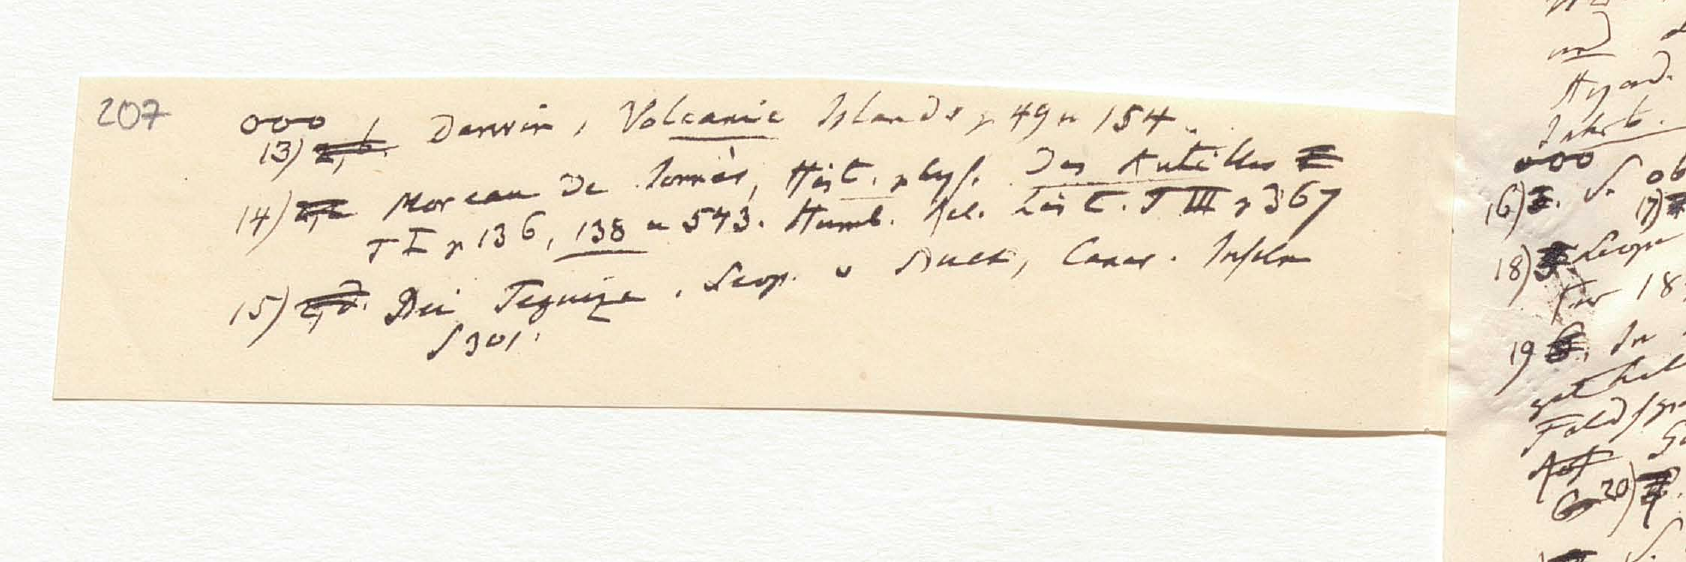 207
ooo
13) Darwin, Volcanic Islands p 49 u 154.
14) Moreau de Jonnès, Hist. phys. des Antilles
T I p 136, 138 u 543. Humb. Rel. hist. T III p 367
15) Bei Teguize, Leop. v Buch, Canar. Inseln
S 301.
und
Jahrb.
ooo
16) S. ob
17)
18) Leop
für 18
19 In
Feldsp
20)
S.